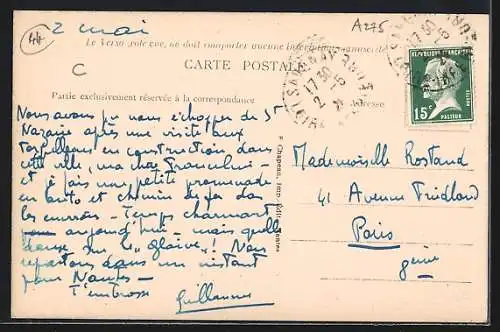 44
2 mai
A275
C
Le Verso colorée, ne doit comporter aucune inscription manuscrite
CARTE POSTALE
Partie exclusivement réservée à la correspondance
Adresse
17 30
2 - 5
RÉPUBLIQUE FRANÇAISE
15c
POSTES
PASTEUR
Nous avons pu nous échapper de St
Nazaire après une visite aux
torpilleurs en construction dans
cette ville, ma chère
fais une petite promenade
en auto et chemin de fer dans
les environs - Temps charmant
aujourd'hui - mais quelle
danse sur le "glaive"! Nous
repartons dans un instant
pour Nantes -
T'embrasse
Guillaume
F. Chapeau, Imp. Édit. Nantes
Mademoiselle Rostand
41 Avenue Friedland
Paris